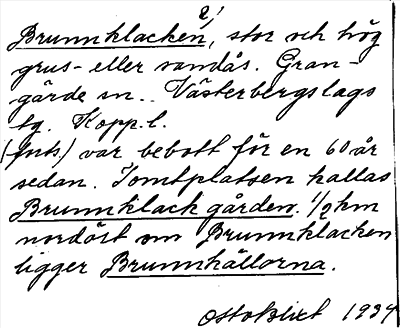 2!
Brunnklacken, stor och hög
grus- eller sandås. Gran-
gärde sn.. Västerbergslags
tg. Kopp. l.
(forts.) var bebott för en 60 år
sedan. Tomtplatsen kallas
Brunnklack gården. 1/2 km
nordöst om Brunnklacken
ligger Brunnkällorna.
Otto Blixt 1934